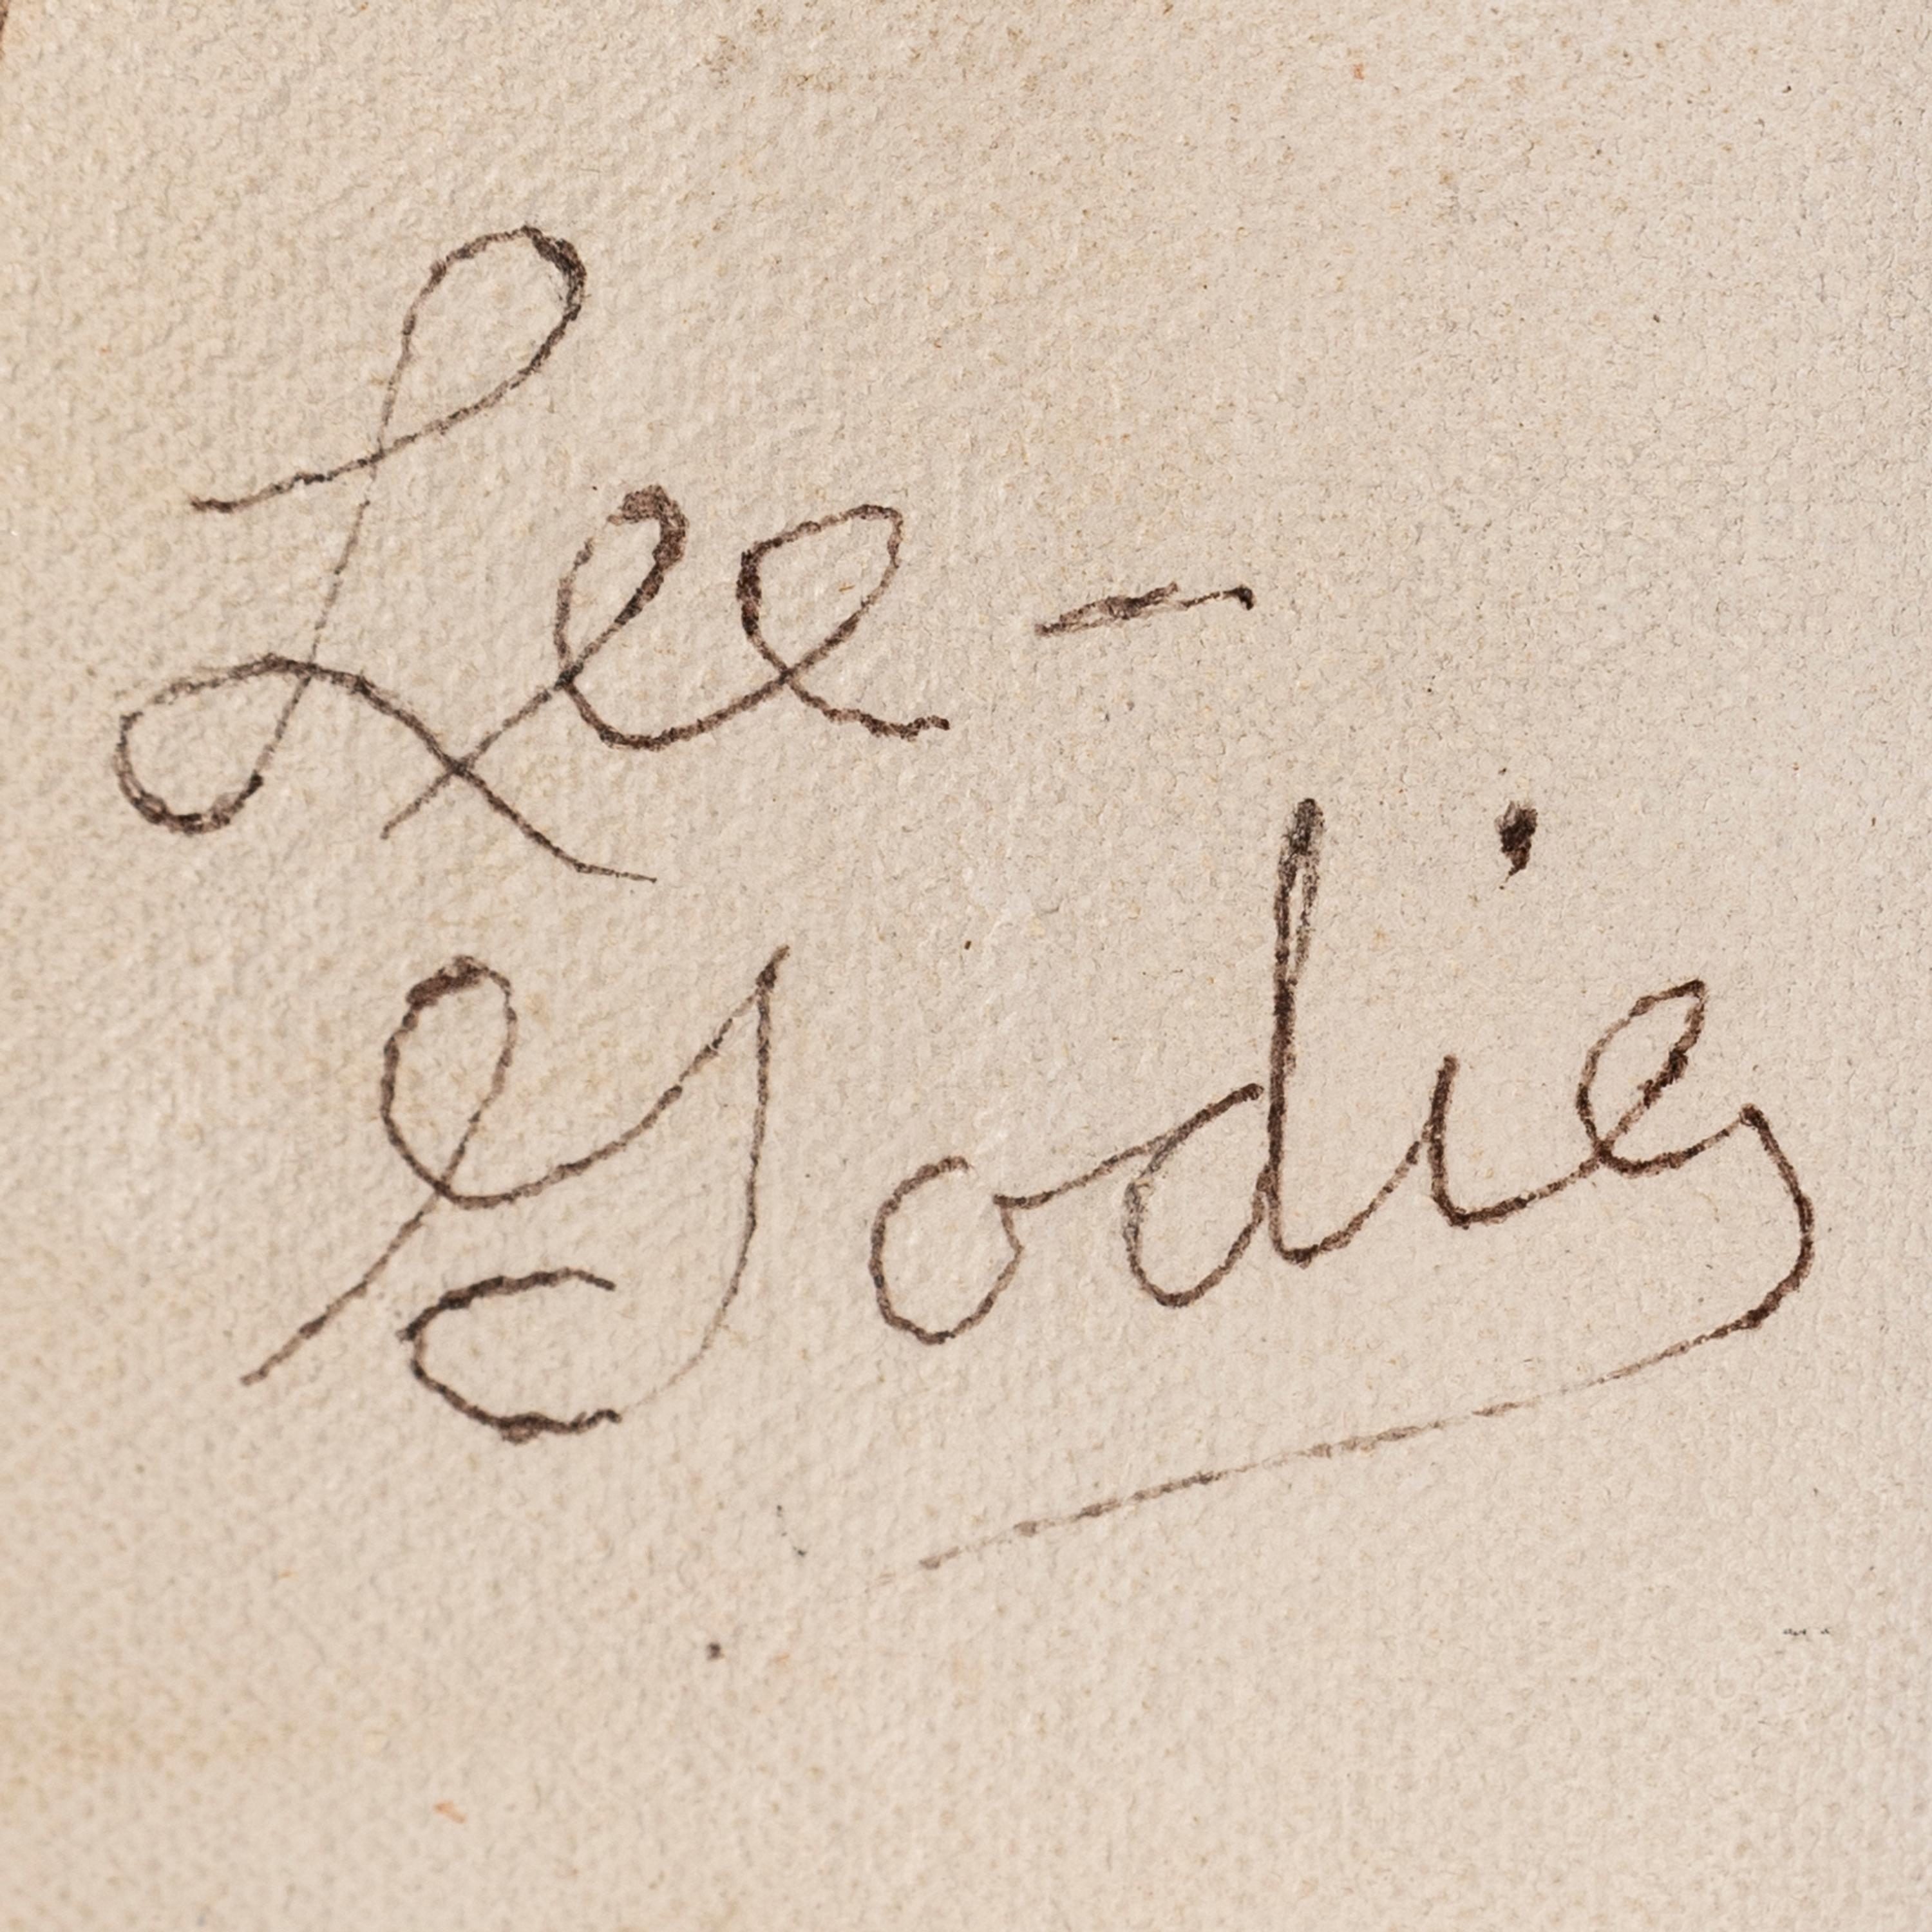 Lee -
Godie